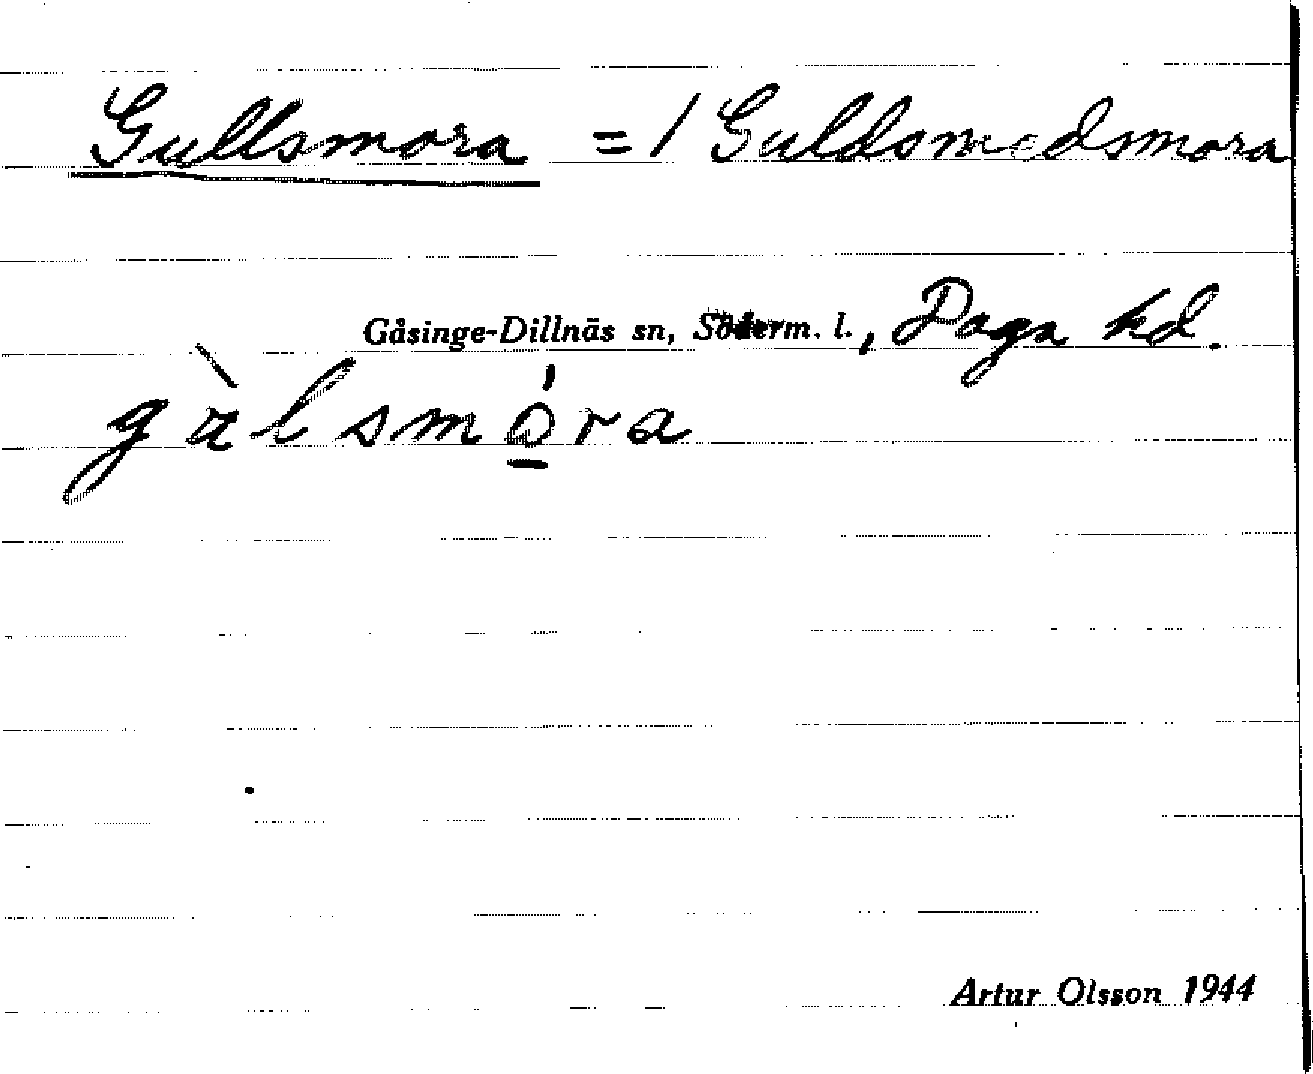 Gullsmora = / Guldsmedsmora
Gåsinge-Dillnäs sn, Söderm. l., Daga hd.
Artur Olsson 1944